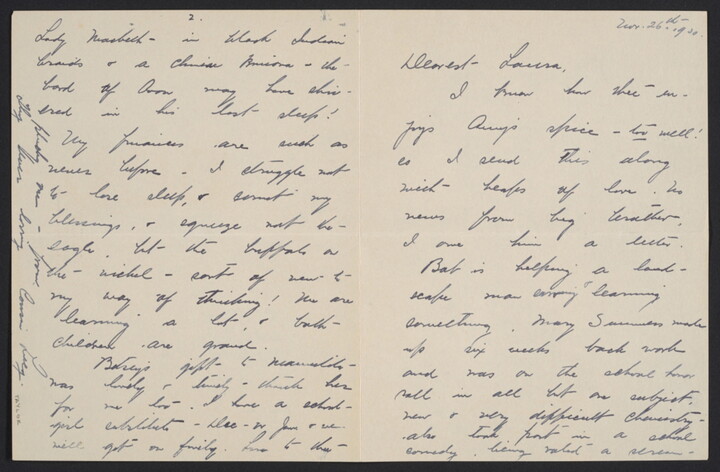 Nov. 26th 1920.
Dearest Laura,
I know how thee en-
joys Amy's spice - too well!
so I send this along
with heaps of love. No
news from big brother,
I owe him a letter.
Bat is helping a land-
scape man learning
something. Mary Summers made
up six weeks back work
and was on the school honor
roll in all but one subject,
new & very difficult Chemistry -
also took part in a school
comedy, being voted a scream -
2.
Lady Macbeth - in black Indian
braids & a Chinese kimona - the
bard of Avon may have shiv-
ered in his last sleep!
My finances are such as
never before - I struggle not
to lose sleep, & count my
blessings, & squeeze not the
eagle, but the buffalo on
the nickel - sort of new to
my way of thinking! We are
learning a lot, & both
children are grand.
Betsey's gift to
was lovely & timely - thank her
for me too. I have a school-
girl substitute - Dec - or Jan & we
will get on finely. Love to thee
Thy ever loving Cousin